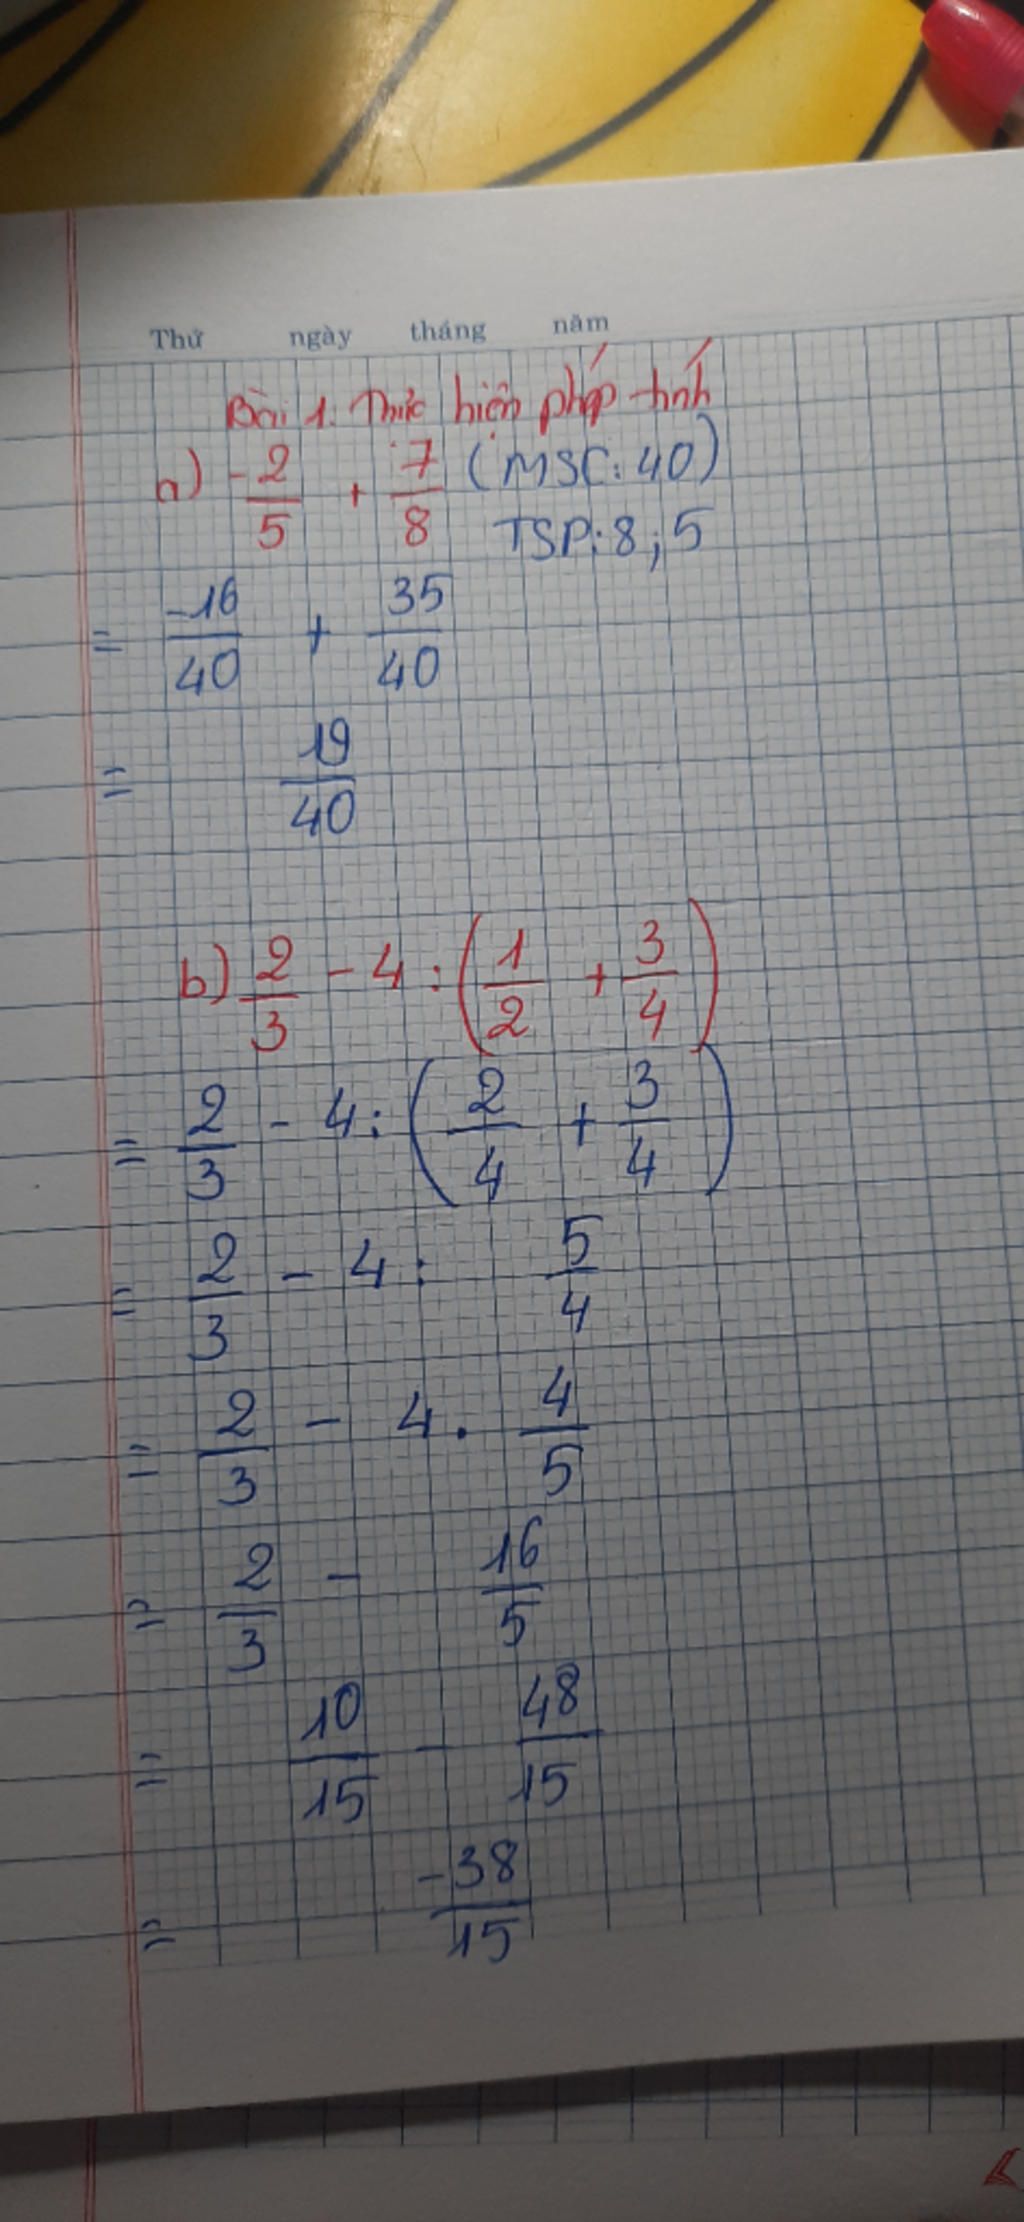 Thứ ngày tháng năm
Bài 1. Thực hiện phép tính
a) -2/5 + 7/8 (MSC: 40)
TSP: 8; 5
= -16/40 + 35/40
= 19/40
b) 2/3 - 4 : (1/2 + 3/4)
= 2/3 - 4 : (2/4 + 3/4)
= 2/3 - 4 : 5/4
= 2/3 - 4 . 4/5
= 2/3 - 16/5
= 10/15 - 48/15
= -38/15